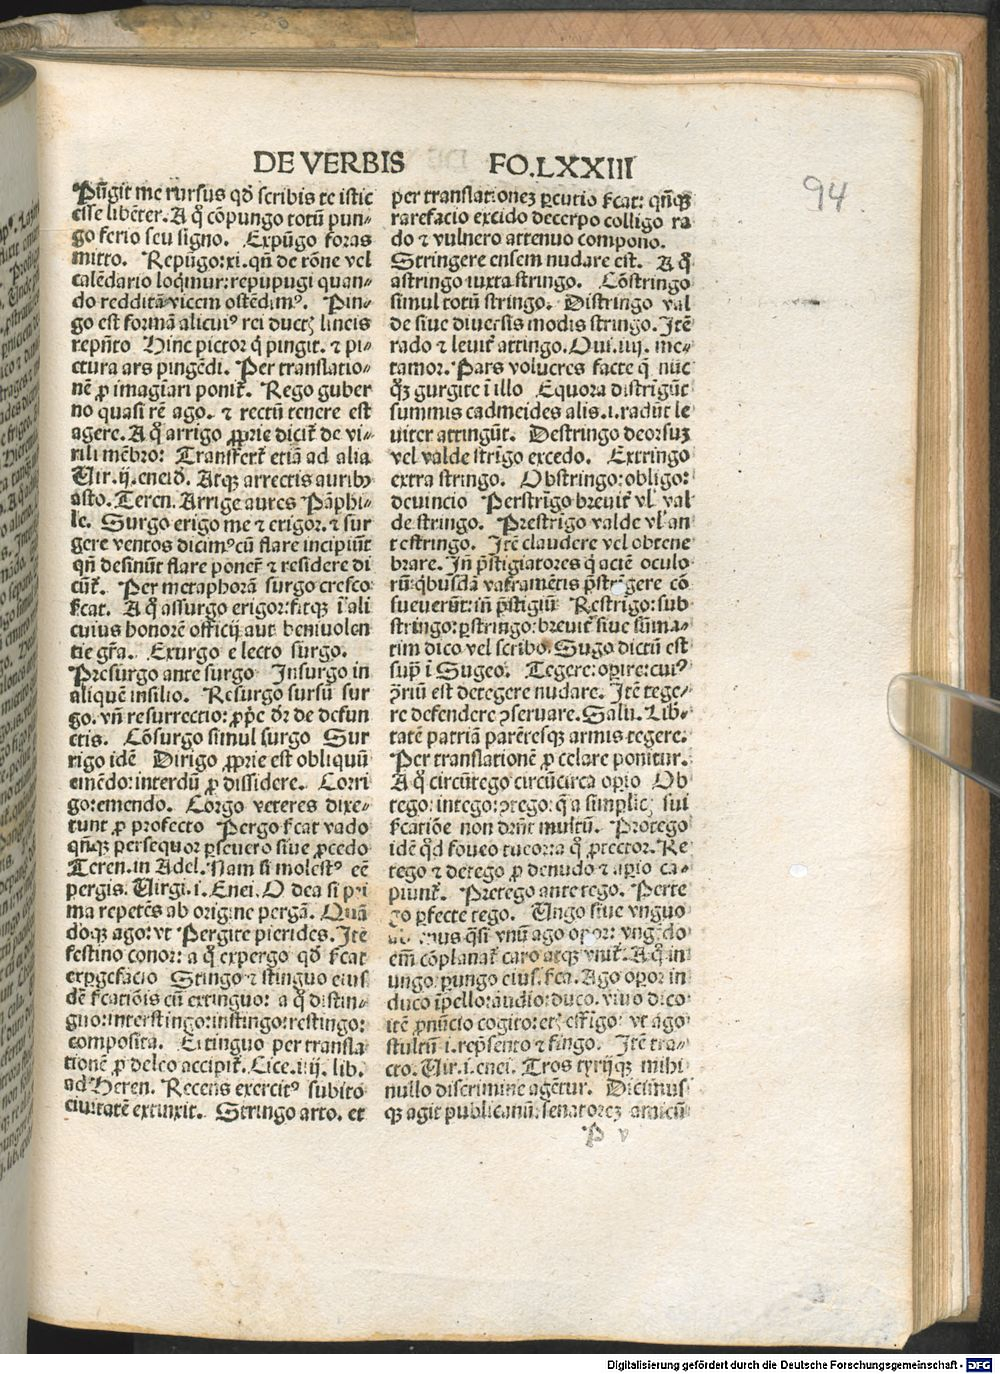 DE VERBIS FO.LXXIII
94
Pūgit me rursus qđ scribis te istic
esse libēter. A q̊ cōpungo totū pun-
go ferio seu signo. Expūgo foras
mitto. Repūgo: xi. qñ de rōne vel
calēdario loqimur: repupugi quan-
do redditā vicem ostēdimꝰ. Pin-
go est formā alicuiꝰ rei ductꝫ lineis
repñto Hinc pictor q̇ pingit. ⁊ pi-
ctura ars pingēdi. Per translatio-
nē ꝓ imagīari ponit᷑. Rego guber
no quasi rē ago. ⁊ rectū tenere est
agere. A q̊ arrigo ꝓprie dicit᷑ de vi-
rili mēbro: Transfert᷑ etiā ad alia
Uir. ij. eneid. Atqꝫ arrectis auribꝰ
asto. Teren. Arrige aures Pāphi-
le. Surgo erigo me ⁊ erigor. ⁊ sur
gere ventos dicimꝰ cū flare incipiūt
qñ desinūt flare ponere ⁊ residere di
cūt᷑. Per metaphorā surgo cresco
ſcat. A q̊ assurgo erigor: fitqꝫ ī ali
cuius honorē officij aut beniuolen
tie grā. Exurgo e lecto surgo.
Presurgo ante surgo Insurgo in
aliquē insilio. Resurgo sursū sur
go. vñ resurrectio: ꝓp̄e dr̄ de defun
ctis. Cōsurgo simul surgo Sur
rigo idē Dirigo ꝓprie est obliquū
emēdo: interdū ꝓ dissidere. Corri
go: emendo. Corgo veteres dixe-
runt ꝓ profecto Pergo ſcat vado
qñqꝫ persequor ꝑseuero siue ꝓcedo
Teren. in Adel. Nam si molestꝰ eē
pergis. Uirgi. i. Enei. O dea si pri
ma repetēs ab origine pergā. Quā
doqꝫ ago: vt Pergite pierides. Itē
festino conor: a q̊ expergo qđ ſcat
exꝑgefacio Stingo ⁊ stinguo eius
dē ſcatiōis cū extinguo: a q̊ distin-
guo: interstingo: instingo: restingo:
composita. Extinguo per transla
tionē ꝓ deleo accipit᷑. Cice. iiij. lib.
ad Heren. Recens exercitꝰ subito
ciuitatē extinxit. Stringo arto. et
per translationeꝫ ꝑcutio ſcat: qñqꝫ
rarefacio excido decerpo colligo ra
do ⁊ vulnero attenuo compono.
Stringere ensem nudare est. A q̊
astringo iuxta stringo. Cōstringo
simul totū stringo. Distringo val
de siue diuersis modis stringo. Itē
rado ⁊ leuit᷑ attingo. Oui. iiij. me-
tamor. Pars volucres facte q̄ nūc
qꝫ gurgite ī illo Equora distrigūt
summis cadmeides alis. i. radūt le
uiter attingūt. Destringo deorsuꝫ
vel valde strīgo excedo. Extringo
extra stringo. Obstringo: obligo:
deuincio Perstrīgo breuit᷑ vl̓ val
de stringo. Prestrīgo valde vl̓ an
te stringo. Itē claudere vel obtene
brare. Iñ p̄stigiatores q̇ aciē oculo
rū: qbusdā vaframētis p̄strīgere cō
sueuerūt: iñ p̄stigiū Restrigo: sub
stringo: ꝑstringo: breuit᷑ siue sūma-
tim dico vel scribo. Sugo dictū est
supͥ ī Sugeo. Tegere: oꝑire: cuiꝰ
ꝯͬriū est detegere nudare. Itē tege-
re defendere ꝯseruare. Salu. Lib-
tatē patriā parētesqꝫ armis tegere.
Per translationē ꝓ celare ponitur.
A q̊ circūtego circūcirca oꝑio Ob
tego: intego: ꝯtego: q̄ a simplicꝫ sui
ſcatiōe non drn̄t multū. Protego
idē qđ foueo tueor: a q̊ ꝓtector. Re
tego ⁊ detego ꝓ denudo ⁊ aꝑio ca-
piunt᷑. Pretego ante tego. Perte
go ꝑfecte tego. Ungo siue vnguo
qſi vnū ago
em̄ cōplanat᷑ caro atqꝫ vnit᷑. A q̊ in
ungo: ꝑungo eius. ſca. Ago oꝑor in
duco īpello: audio: duco. viuo dico
itē ꝓnūcio cogito: etꝫ effīgo: vt ago
stultū i. rep̄sento ⁊ fingo. Itē tra-
cto. Uir. i. enei. Tros tyrijqꝫ mihi
nullo discrimine agētur. Dicimus
qꝫ agit publicanū. senatoreꝫ amicū
P v
Digitalisierung gefördert durch die Deutsche Forschungsgemeinschaft - DFG